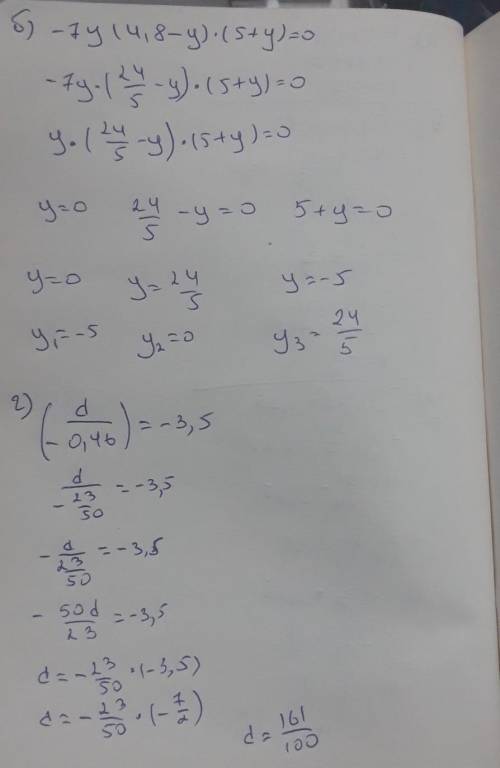 б) -7y (4,8-y)·(5+y)=0
-7y·(24/5 -y)·(5+y)=0
y·(24/5 -y)·(5+y)=0
y=0 24/5 -y=0 5+y=0
y=0 y=24/5 y=-5
y₁=-5 y₂=0 y₃=24/5
г) (d/-0,46)=-3,5
d/-23/50 =-3,5
-d/23/50 =-3,5
-50d/23 =-3,5
d=-23/50·(-3,5)
d=-23/50·(-7/2)
d=161/100